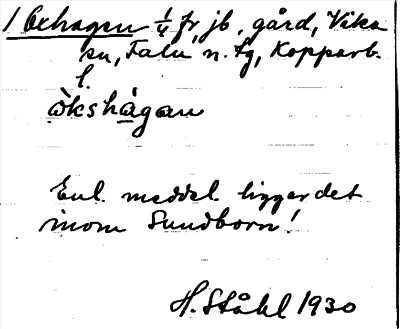 1 Oxhagen 1/4 fr, jb, gård, Vika
sn, Falu n. tg, Kopparb.
l.
òkshàgan
Enl. meddel. ligger det
inom Sundborn!
H. Ståhl 1930